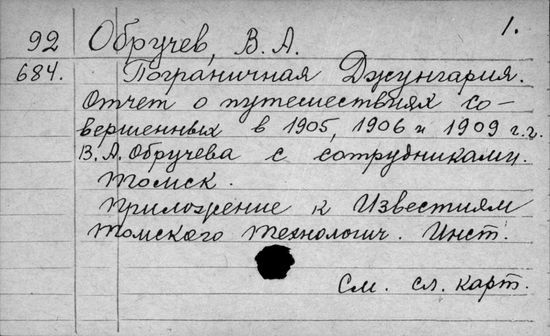 1.
92 Обручев, В. А.
684. Пограничная Джунгария.
Отчет о путешествиях со-
вершенных в 1905, 1906 и 1909 г.г.
В.А. Обручева с сотрудниками.
Томск.
Приложение к Известиям
Томского Технологич. Инст.
См. сл. карт.